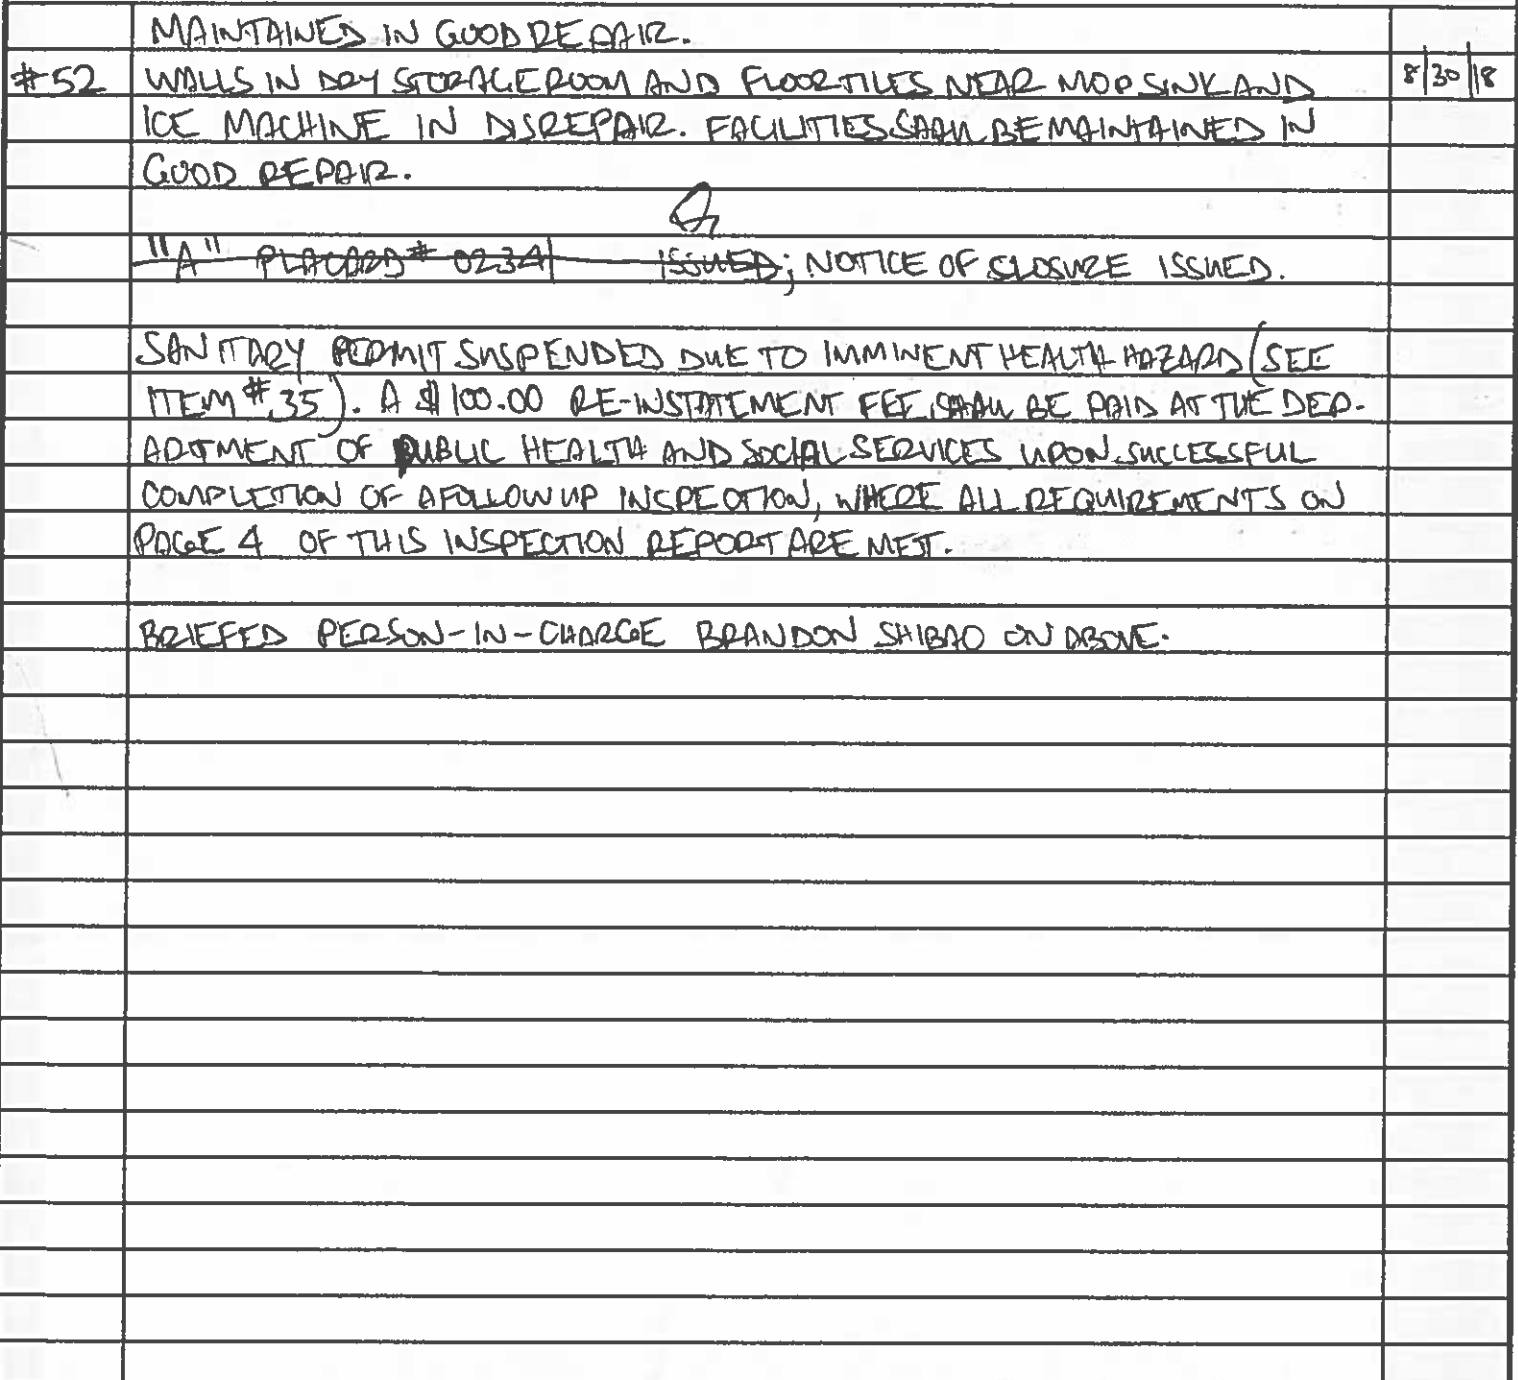 MAINTAINED IN GOOD REPAIR.
#52 WALLS IN DRY STORAGE ROOM AND FLOOR TILES NEAR MOP SINK AND 8/30/18
ICE MACHINE IN DISREPAIR. FACILITIES SHALL BE MAINTAINED IN
GOOD REPAIR.
"A" PLACARD # 02341 ISSUED; NOTICE OF CLOSURE ISSUED.
SANITARY PERMIT SUSPENDED DUE TO IMMINENT HEALTH HAZARD (SEE
ITEM #35). A $100.00 RE-INSTATEMENT FEE SHALL BE PAID AT THE DEP-
ARTMENT OF PUBLIC HEALTH AND SOCIAL SERVICES UPON SUCCESSFUL
COMPLETION OF A FOLLOW UP INSPECTION, WHERE ALL REQUIREMENTS ON
PAGE 4 OF THIS INSPECTION REPORT ARE MET.
BRIEFED PERSON-IN-CHARGE BRANDON SHIBAO ON ABOVE.